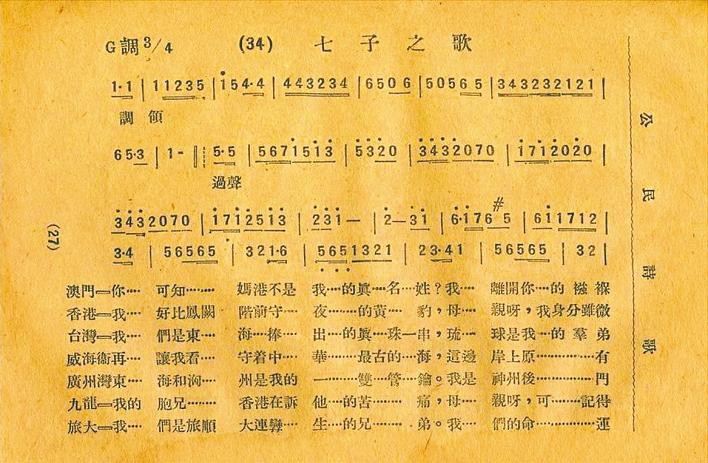 G調3/4 (34) 七子之歌
1·1 | 11235 | 154·4 | 443234 | 6506 | 50565 | 343232121 |
調領
65·3 | 1- | 5·5 | 5671513 | 5320 | 3432070 | 1712020 |
過聲
3432070 | 1712513 | 231— | 2—31 | 6·176#5 | 611712
3·4 | 56565 | 321·6 | 5651321 | 23·41 | 56565 | 32 |
澳門=你…· 可知……· 媽港不是 我…·的眞…名…·姓?我…· 離開你…·的 襁褓
香港=我…· 好比鳳闕 階前守…· 夜……·的黃…· 豹,母…· 親呀,我身分雖微
台灣=我…· 們是東…· 海…·捧…· 出…·的眞…·珠一串,琉…· 球是我…·的 羣 弟
威海衛再…· 讓我看…· 守着中…· 華……·最古的…海,這邊 岸上原………·有
廣州灣東…· 海和洶…· 州是我的 一………·雙…管…鑰。我是 神州後………·門
九龍=我的 胞兄……· 香港在訴 他…·的苦…· 痛,母…· 親呀,可……記得
旅大=我…· 們是旅順 大連孿…· 生…·的兄…· 弟。我…· 們的命………·運
公民詩歌
(27)